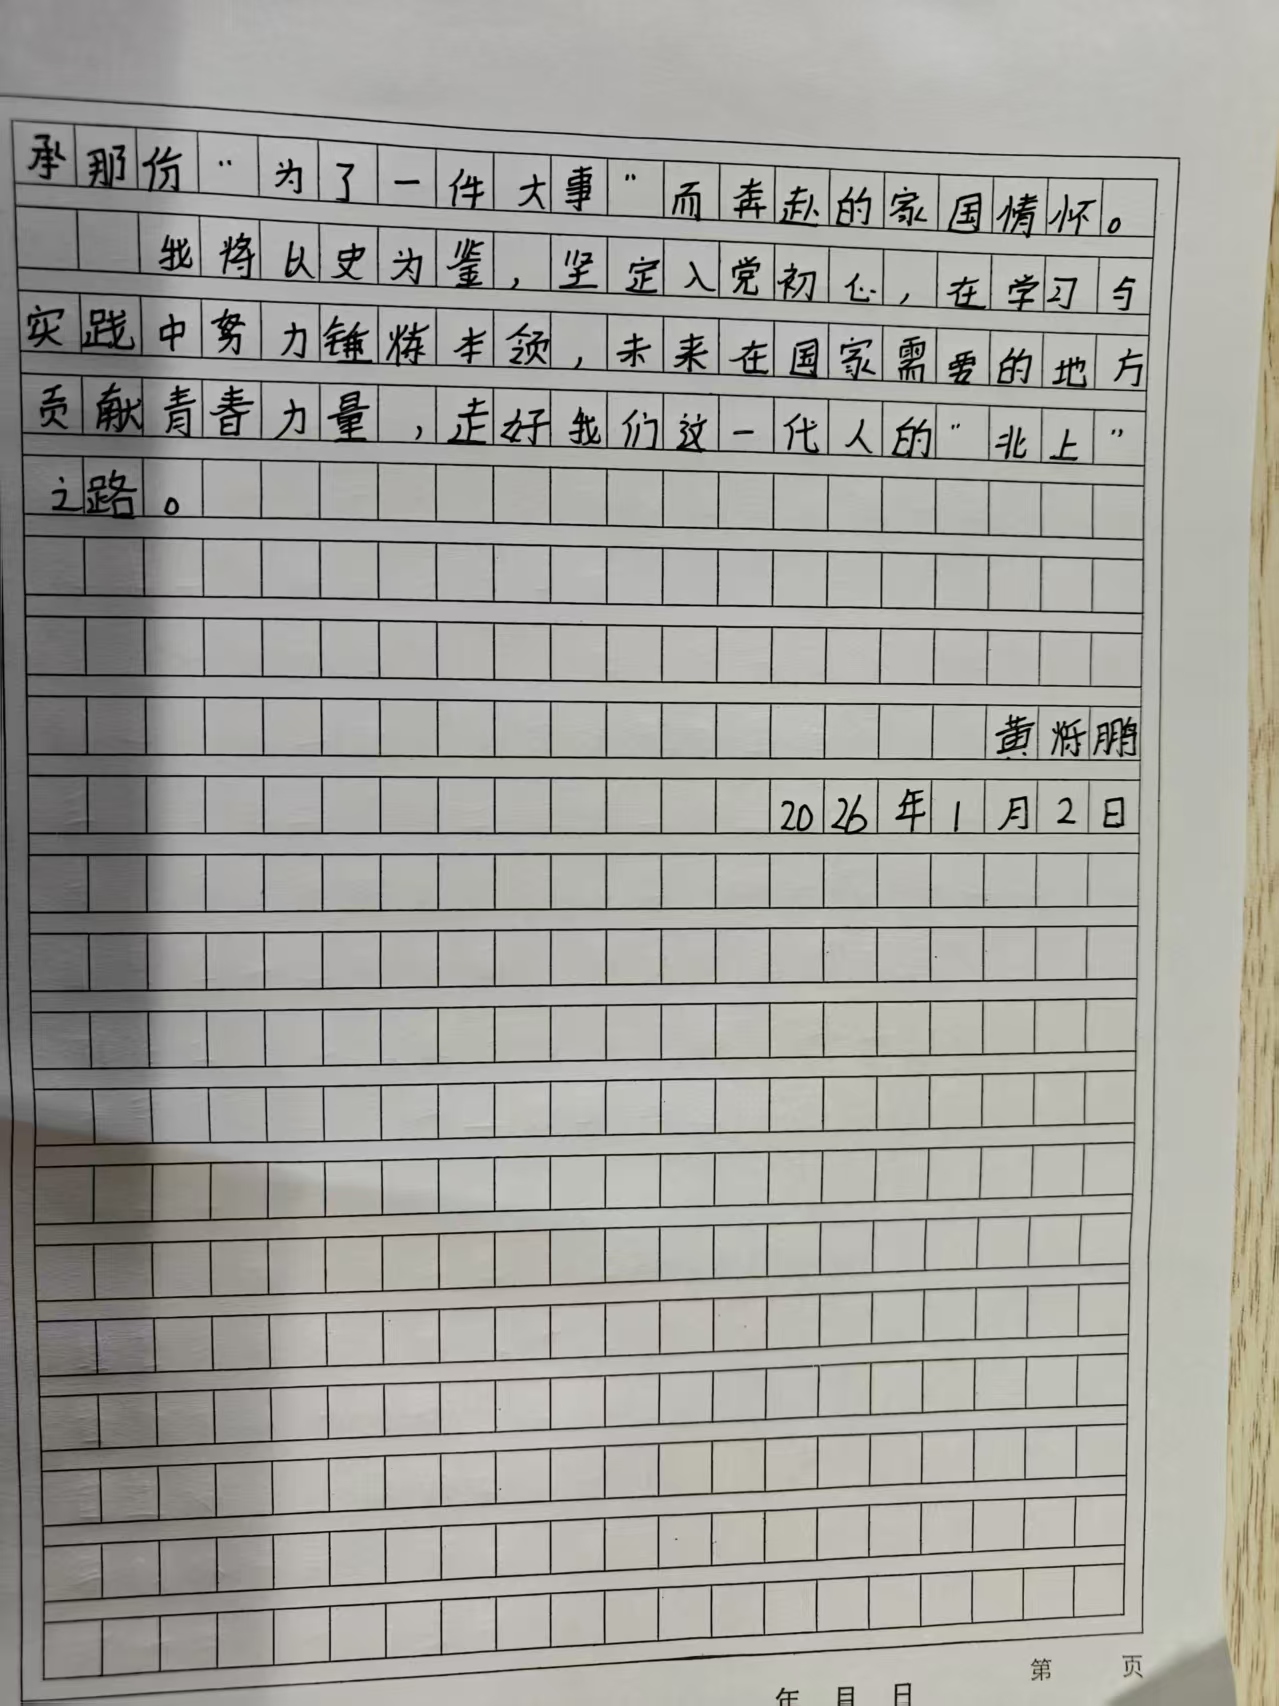 承那份“为了一件大事”而奔赴的家国情怀。
我将以史为鉴，坚定入党初心，在学习与
实践中努力锤炼本领，未来在国家需要的地方
贡献青春力量，走好我们这一代人的“北上”
之路。
黄烁鹏
2026年1月2日
第 页
年 月 日